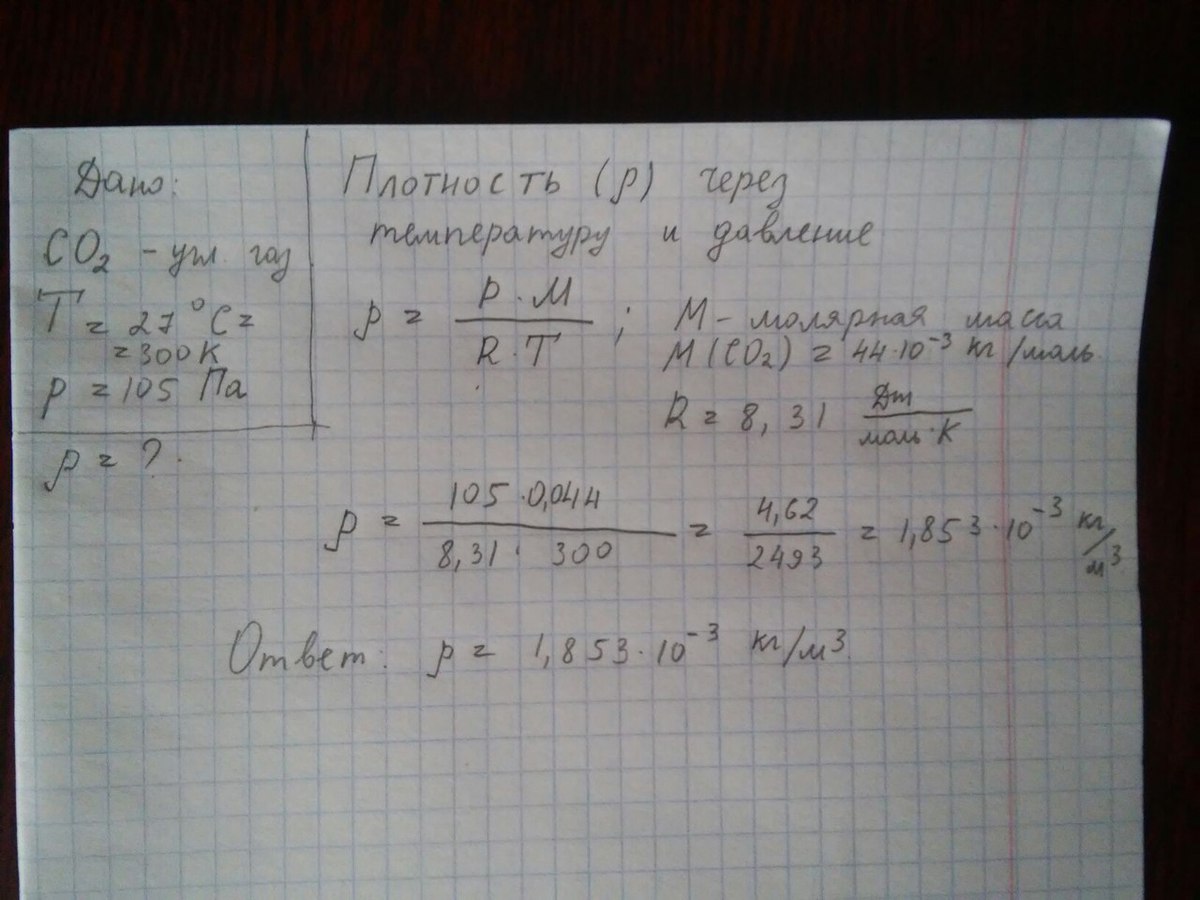 Дано:
CO₂ - угл. газ
T = 27°C =
= 300 К
p = 105 Па
ρ = ?
Плотность (ρ) через
температуру и давление
ρ = (P · M)/(R · T) ; M - молярная масса
M(CO₂) = 44·10⁻³ кг/моль
R = 8,31 Дж/(моль·К)
ρ = (105 · 0,044)/(8,31 · 300) = 4,62/2493 = 1,853·10⁻³ кг/м³
Ответ: ρ = 1,853·10⁻³ кг/м³